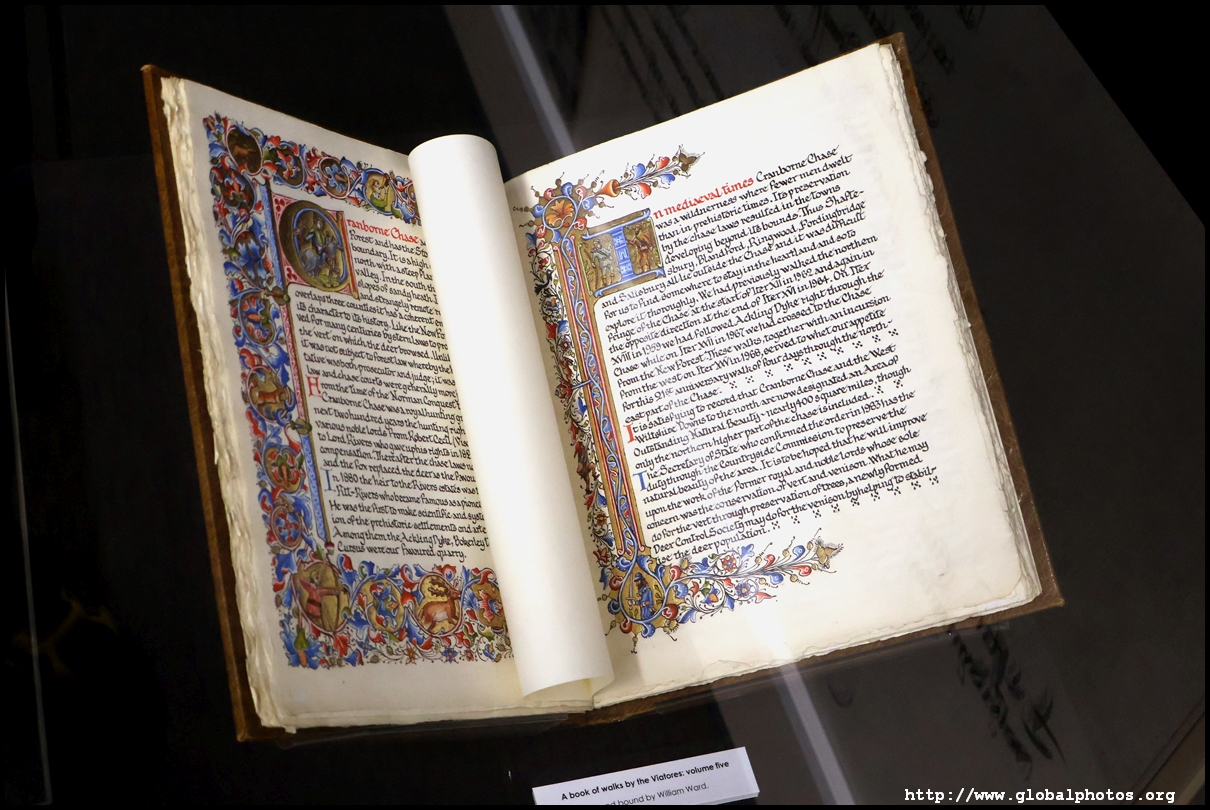 ranborne Chase
Forest and has the Sto
boundary. It is a high
north with a steep
valley. In the south th
slopes of sandy heath. I
and strangely remote
overlaps three counties it has a coherent
its character to its history. Like the New Fo
ved for many centuries by stern laws to
the vert on which the deer browsed. Unli
it was not subject to forest law whereby the
tative was both prosecutor and judge; it was
law and chase courts were generally more
From the time of the Norman Conquest
Cranborne Chase was a royal hunting gr
next two hundred years the hunting right
various noble lords from Robert Cecil, (Vis
to Lord Rivers who gave up his rights in 18
compensation. Thereafter the chase laws
and the fox replaced the deer as the favou
In 1880 the heir to the Rivers estates was
Pitt-Rivers who became famous as a pione
He was the first to make scientific and syst
ion of the prehistoric settlements and arte
Among them, the Ackling Dyke, Bokerley
Cursus were our favoured quarry.
In mediaeval times Cranborne Chase
was a wilderness where fewer men dwelt
than in prehistoric times. Its preservation
by the chase laws resulted in the towns
developing beyond its bounds. Thus Shafte-
sbury, Blandford, Ringwood, Fordingbridge
and Salisbury all lie outside the Chase and it was difficult
for us to find somewhere to stay in the heartland and so to
explore it thoroughly. We had previously walked the northern
fringe of the Chase at the start of Iter XII in 1962 and again in
the opposite direction at the end of Iter XVI in 1964. On Iter
XVIII in 1959 we had followed Ackling Dyke right through the
Chase while on Iter XVII in 1967 we had crossed to the Chase
from the New Forest. These walks, together with an incursion
from the west on Iter XVI in 1968, served to whet our appetite
for this 21st anniversary walk of four days through the north-
east part of the Chase.
It is satisfying to record that Cranborne Chase and the West
Wiltshire Downs to the north are now designated an Area of
Outstanding Natural Beauty - nearly 400 square miles, though
only the northern higher part of the chase is included.
The Secretary of State who confirmed the order in 1983 has the
duty through the Countryside Commission to preserve the
natural beauty of the area. It is to be hoped that he will improve
upon the work of the former royal and noble lords whose sole
concern was the conservation of vert and venison. What he may
do for the vert through preservation of trees, a newly formed
Deer Control Society may do for the venison by helping to stabil-
ise the deer population.
A book of walks by the Viatores: volume five
nd bound by William Ward.
http://www.globalphotos.org